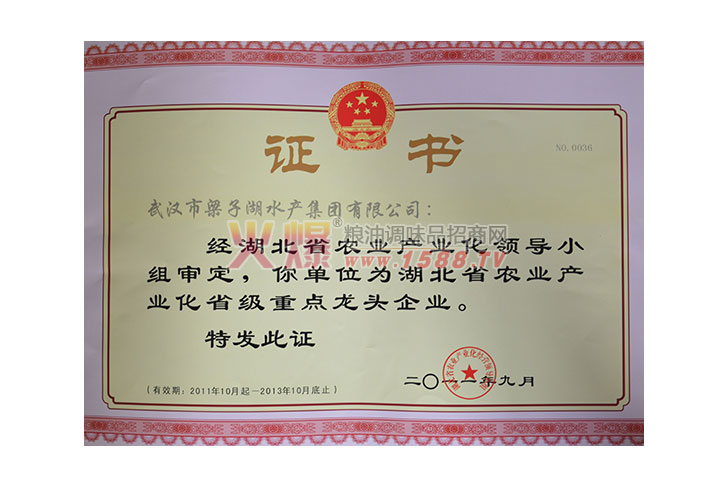 证 书
NO.0036
武汉市梁子湖水产集团有限公司：
经湖北省农业产业化领导小
组审定，你单位为湖北省农业产
业化省级重点龙头企业。
特发此证
二〇一一年九月
(有效期：2011年10月起－2013年10月底止)
火爆®粮油调味品招商网
www.1588.TV